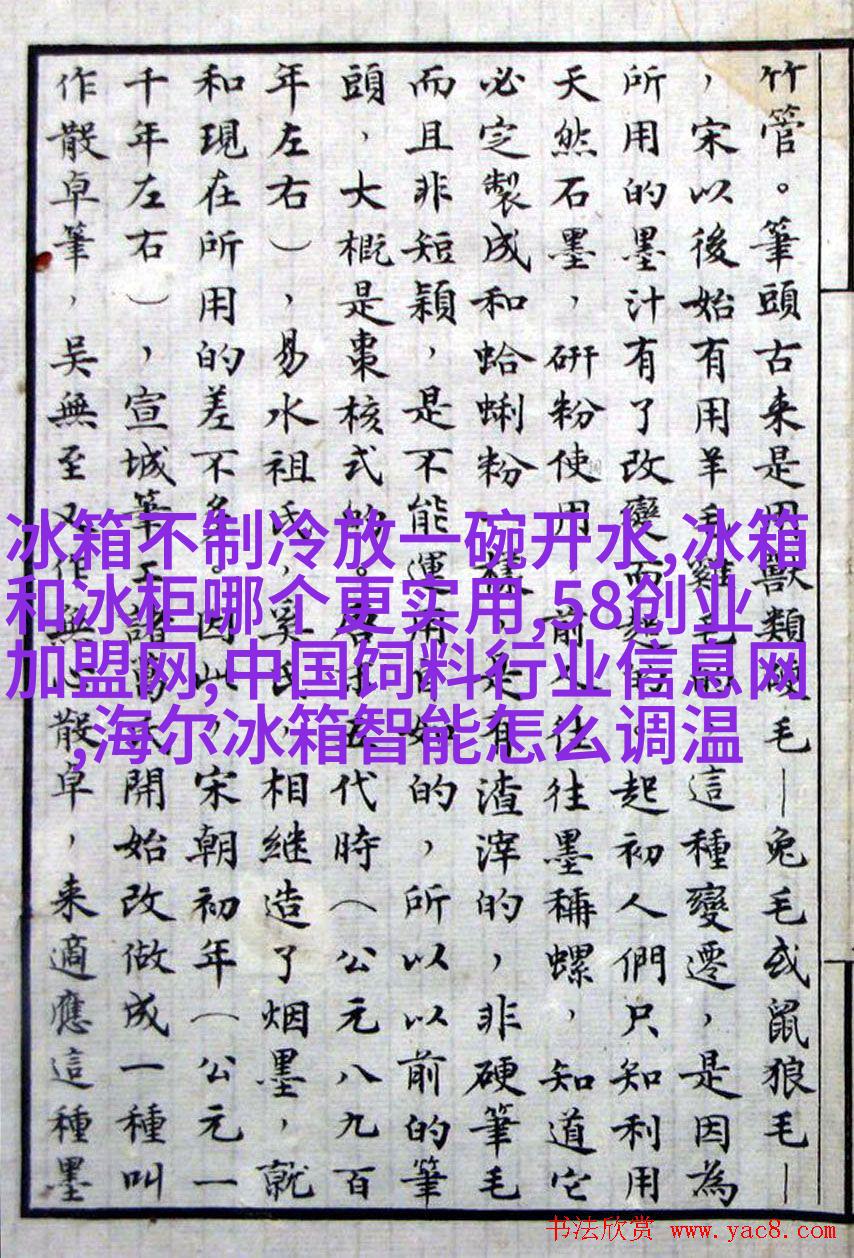 竹管。筆頭古来是用獸類硬毛—兔毛或鼠狼毛—
，宋以後始有用羊毛雞毛的。這種變遷，是因為
所用的墨汁有了改變而起的。起初人們只知利用
天然石墨，研粉使用，前人往往墨稱螺，知道它
必定製成和蛤蜊粉一樣，是有渣滓的，非硬筆毛
而且非短穎，是不能運用自如的，所以以前的筆
頭，大概是棗核式的。唐末五代時（公元八九百
年左右），易水祖氏，奚氏，相継造了烟墨，就
和現在所用的差不多。因此，宋朝初年（公元一
千年左右），宣城筆工諸葛氏開始改做成一種叫
作散卓筆，吳無至又作無心散卓，来適應這種墨
冰箱不制冷放一碗开水,冰箱
和冰柜哪个更实用,58创业
加盟网,中国饲料行业信息网
,海尔冰箱智能怎么调温
书法欣赏 www.yac8.com